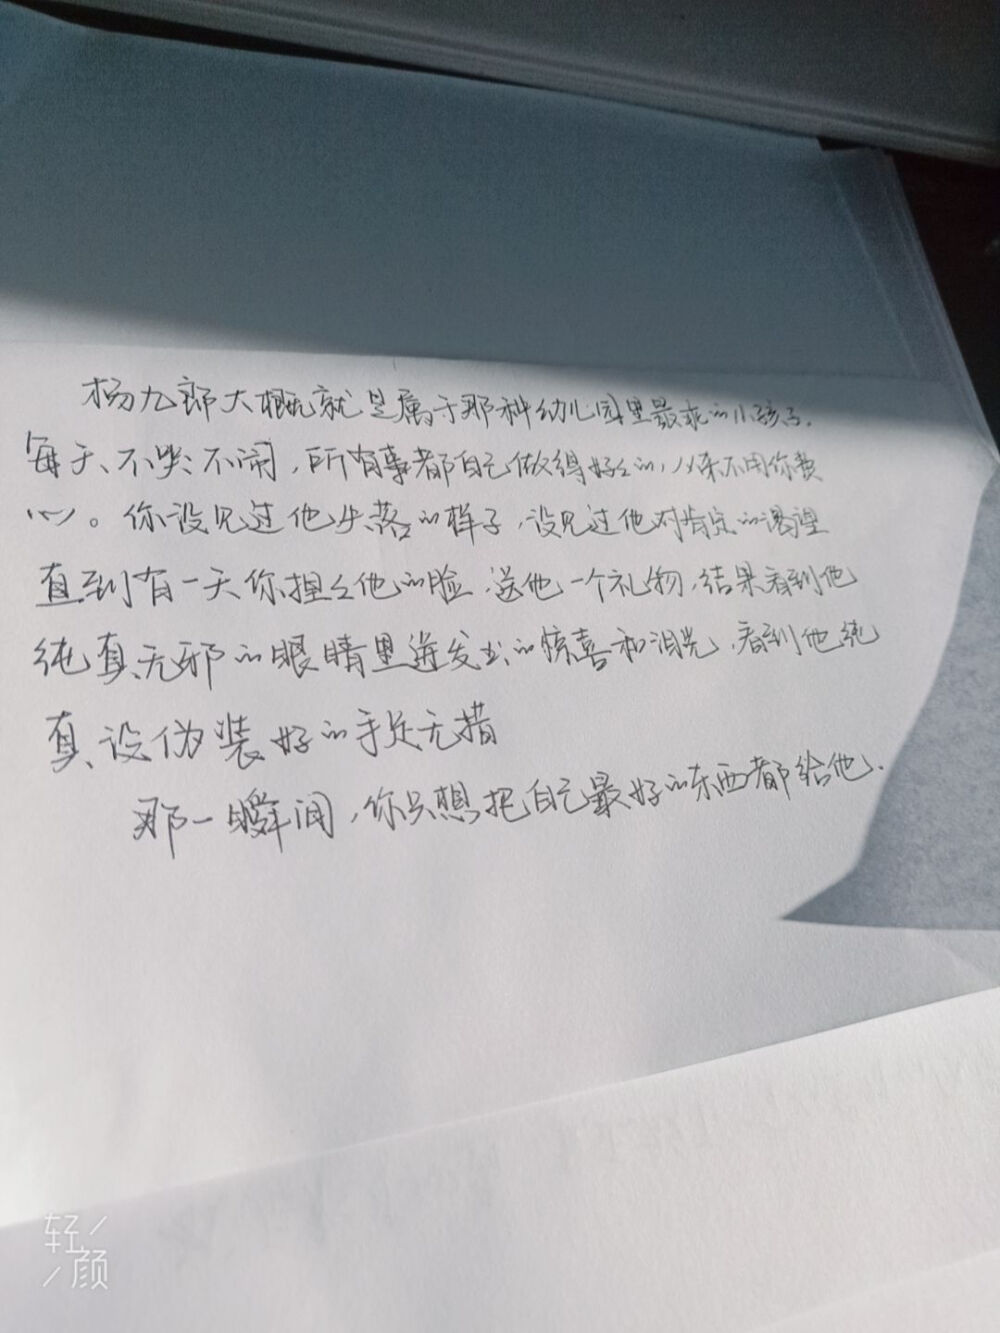 杨九郎大概就是属于那种幼儿园里最乖的小孩子.
每天不哭不闹,所有事都自己做得好好的,从来不用你费
心。你没见过他失落的样子,没见过他对肯定的渴望
直到有一天你捏捏他的脸,送他一个礼物,结果看到他
纯真无邪的眼睛里迸发出的惊喜和泪光,看到他纯
真没伪装好的手足无措
那一瞬间,你只想把自己最好的东西都给他.
轻颜